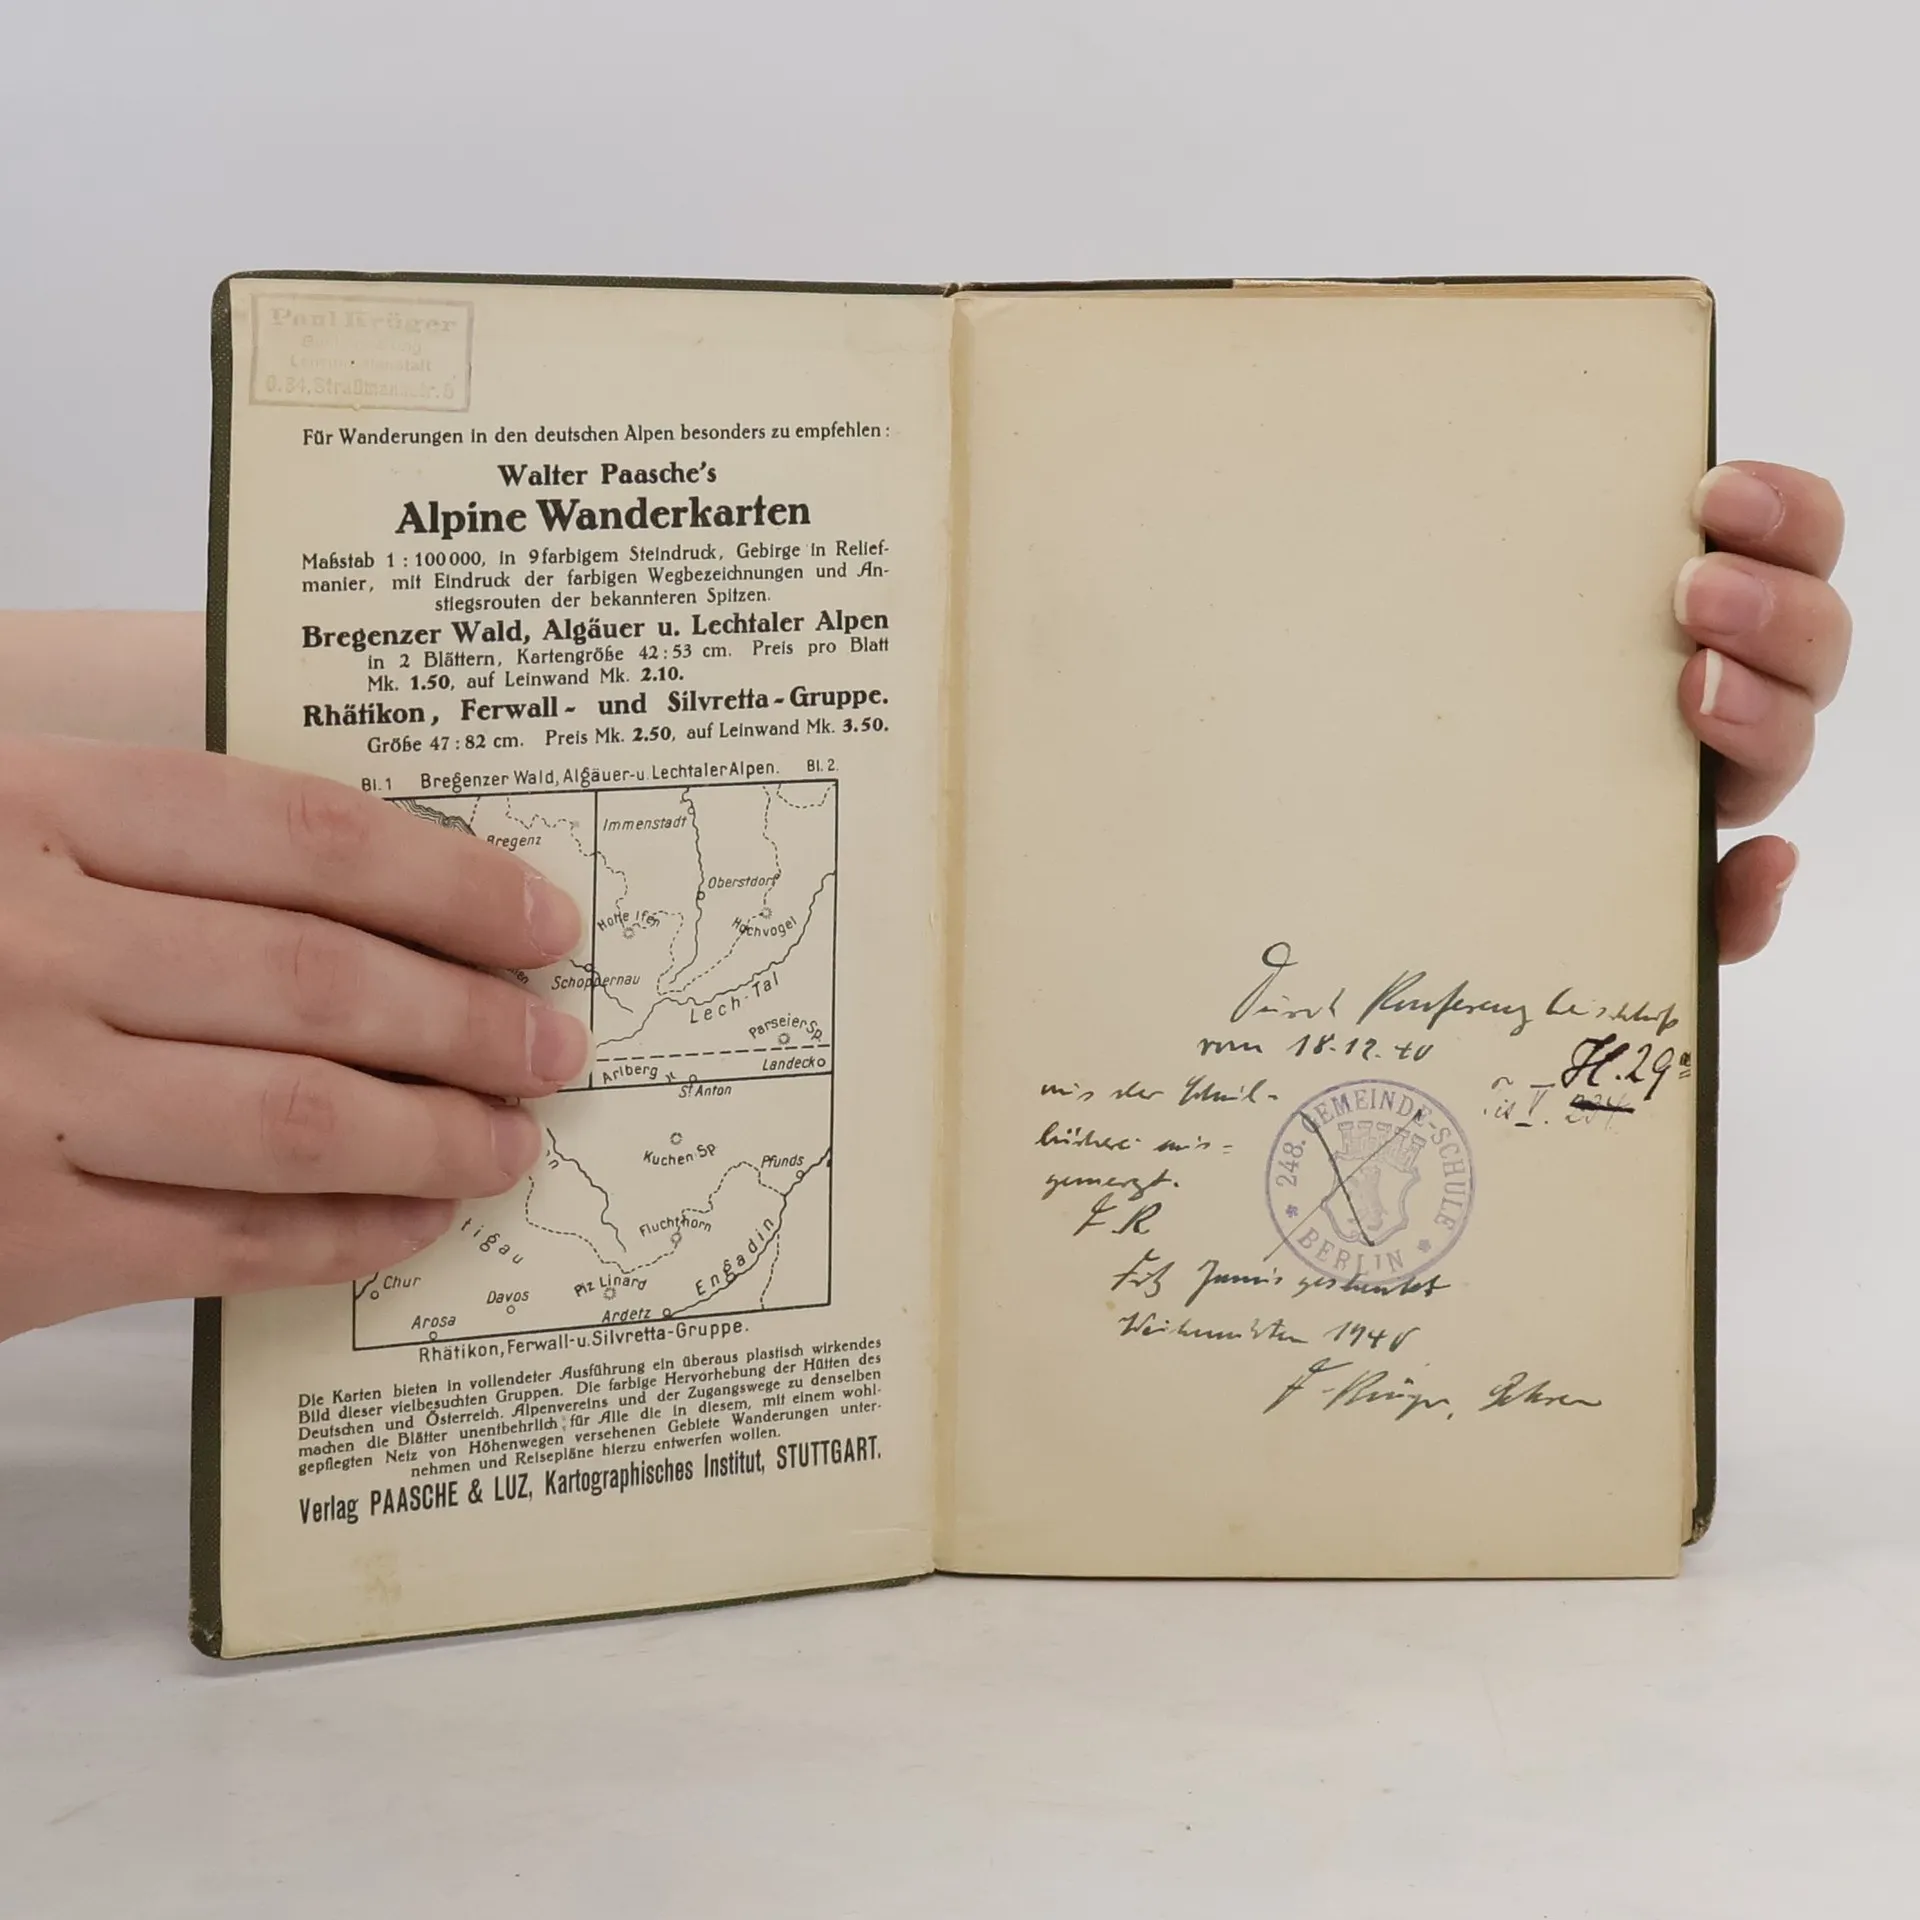 Paul Krüger
O.34, Straßmannstr. 6
Für Wanderungen in den deutschen Alpen besonders zu empfehlen:
Walter Paasche's
Alpine Wanderkarten
Maßstab 1 : 100 000, in 9farbigem Steindruck, Gebirge in Relief-
manier, mit Eindruck der farbigen Wegbezeichnungen und An-
stiegsrouten der bekannteren Spitzen.
Bregenzer Wald, Algäuer u. Lechtaler Alpen
in 2 Blättern, Kartengröße 42 : 53 cm. Preis pro Blatt
Mk. 1.50, auf Leinwand Mk. 2.10.
Rhätikon, Ferwall- und Silvretta-Gruppe.
Größe 47 : 82 cm. Preis Mk. 2.50, auf Leinwand Mk. 3.50.
Bl. 1 Bregenzer Wald, Algäuer- u. Lechtaler Alpen. Bl. 2.
Bregenz
Immenstadt
Oberstdorf
Hohe Ifen
Hochvogel
Schoppernau
Lech-Tal
Parseier Sp.
Arlberg
Landeck
St Anton
Kuchen Sp
Pfunds
Fluchthorn
tigau
Engadin
Chur
Piz Linard
Davos
Ardetz
Arosa
Rhätikon, Ferwall- u. Silvretta-Gruppe.
Die Karten bieten in vollendeter Ausführung ein überaus plastisch wirkendes
Bild dieser vielbesuchten Gruppen. Die farbige Hervorhebung der Hütten des
Deutschen und Österreich. Alpenvereins und der Zugangswege zu denselben
machen die Blätter unentbehrlich für Alle die in diesem, mit einem wohl-
gepflegten Netz von Höhenwegen versehenen Gebiete Wanderungen unter-
nehmen und Reisepläne hierzu entwerfen wollen.
Verlag PAASCHE & LUZ, Kartographisches Institut, STUTTGART.
Durch Konferenzbeschluß
vom 18.12.40
H.29a
aus der Schul-
bücherei aus=
gemerzt.
F. R
248. GEMEINDE-SCHULE
BERLIN
geschenkt
Weihnachten 1940